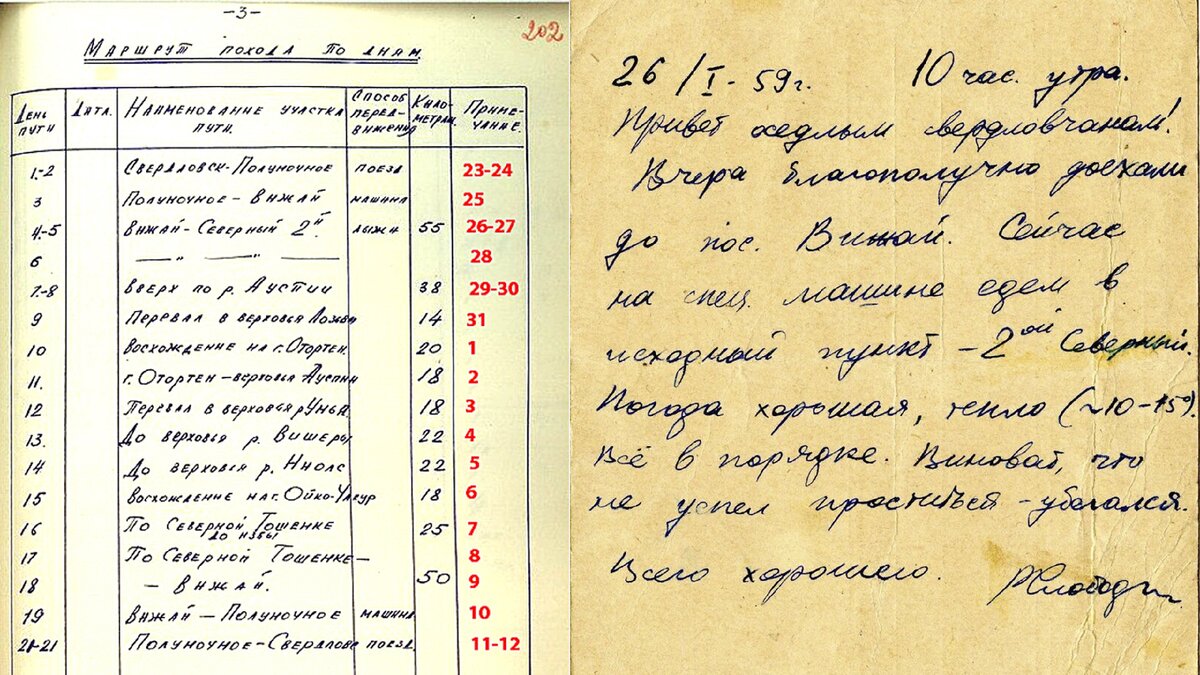 -3-
202
Маршрут похода по дням.
День пути Дата. Наименование участка пути. Способ передвижения Километраж. Примечание.
1.-2 Свердловск-Полуночное поезд 23-24
3 Полуночное-Вижай машина 25
4.-5 Вижай-Северный 2й. лыжи 55 26-27
6 — „ — „ — 28
7.-8 Вверх по р. Ауспии 38 29-30
9 Перевал в верховья Лозьвы 14 31
10 Восхождение на г. Отортен. 20 1
11. г. Отортен-верховья Ауспии 18 2
12 Перевал в верховья р. Унья. 18 3
13. До верховья р. Вишеры 22 4
14 До верховья р. Ниолс 22 5
15 Восхождение на г. Ойко-Чакур 18 6
16 По Северной Тошенке до избы 25 7
17 По Северной Тошенке- 8
18 -Вижай. 50 9
19 Вижай-Полуночное машина 10
20-21 Полуночное-Свердловс поезд 11-12
26/I-59г. 10 час. утра.
Привет оседлым свердловчанам!
Вчера благополучно доехали
до пос. Вижай. Сейчас
на спец. машине едем в
исходный пункт - 2ой Северный.
Погода хорошая, тепло (~10-15°).
Всё в порядке. Виноват, что
не успел проститься - убегался.
Всего хорошего.